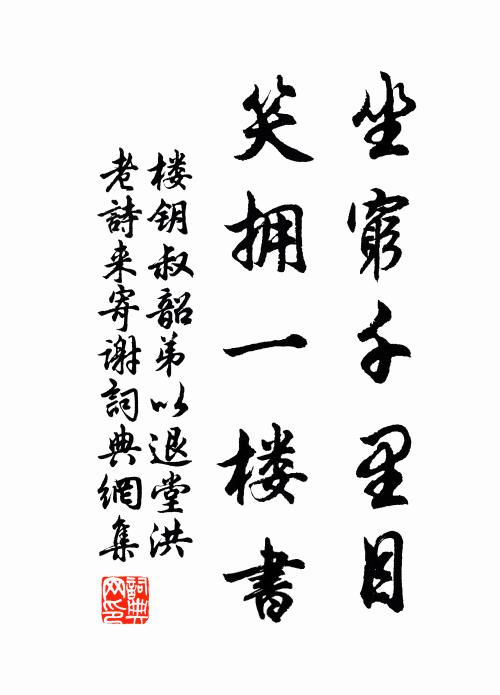 坐窮千里目
笑拥一楼書
楼钥叔韶弟以退堂洪
老詩来寄谢詞典網集
詞典
网印